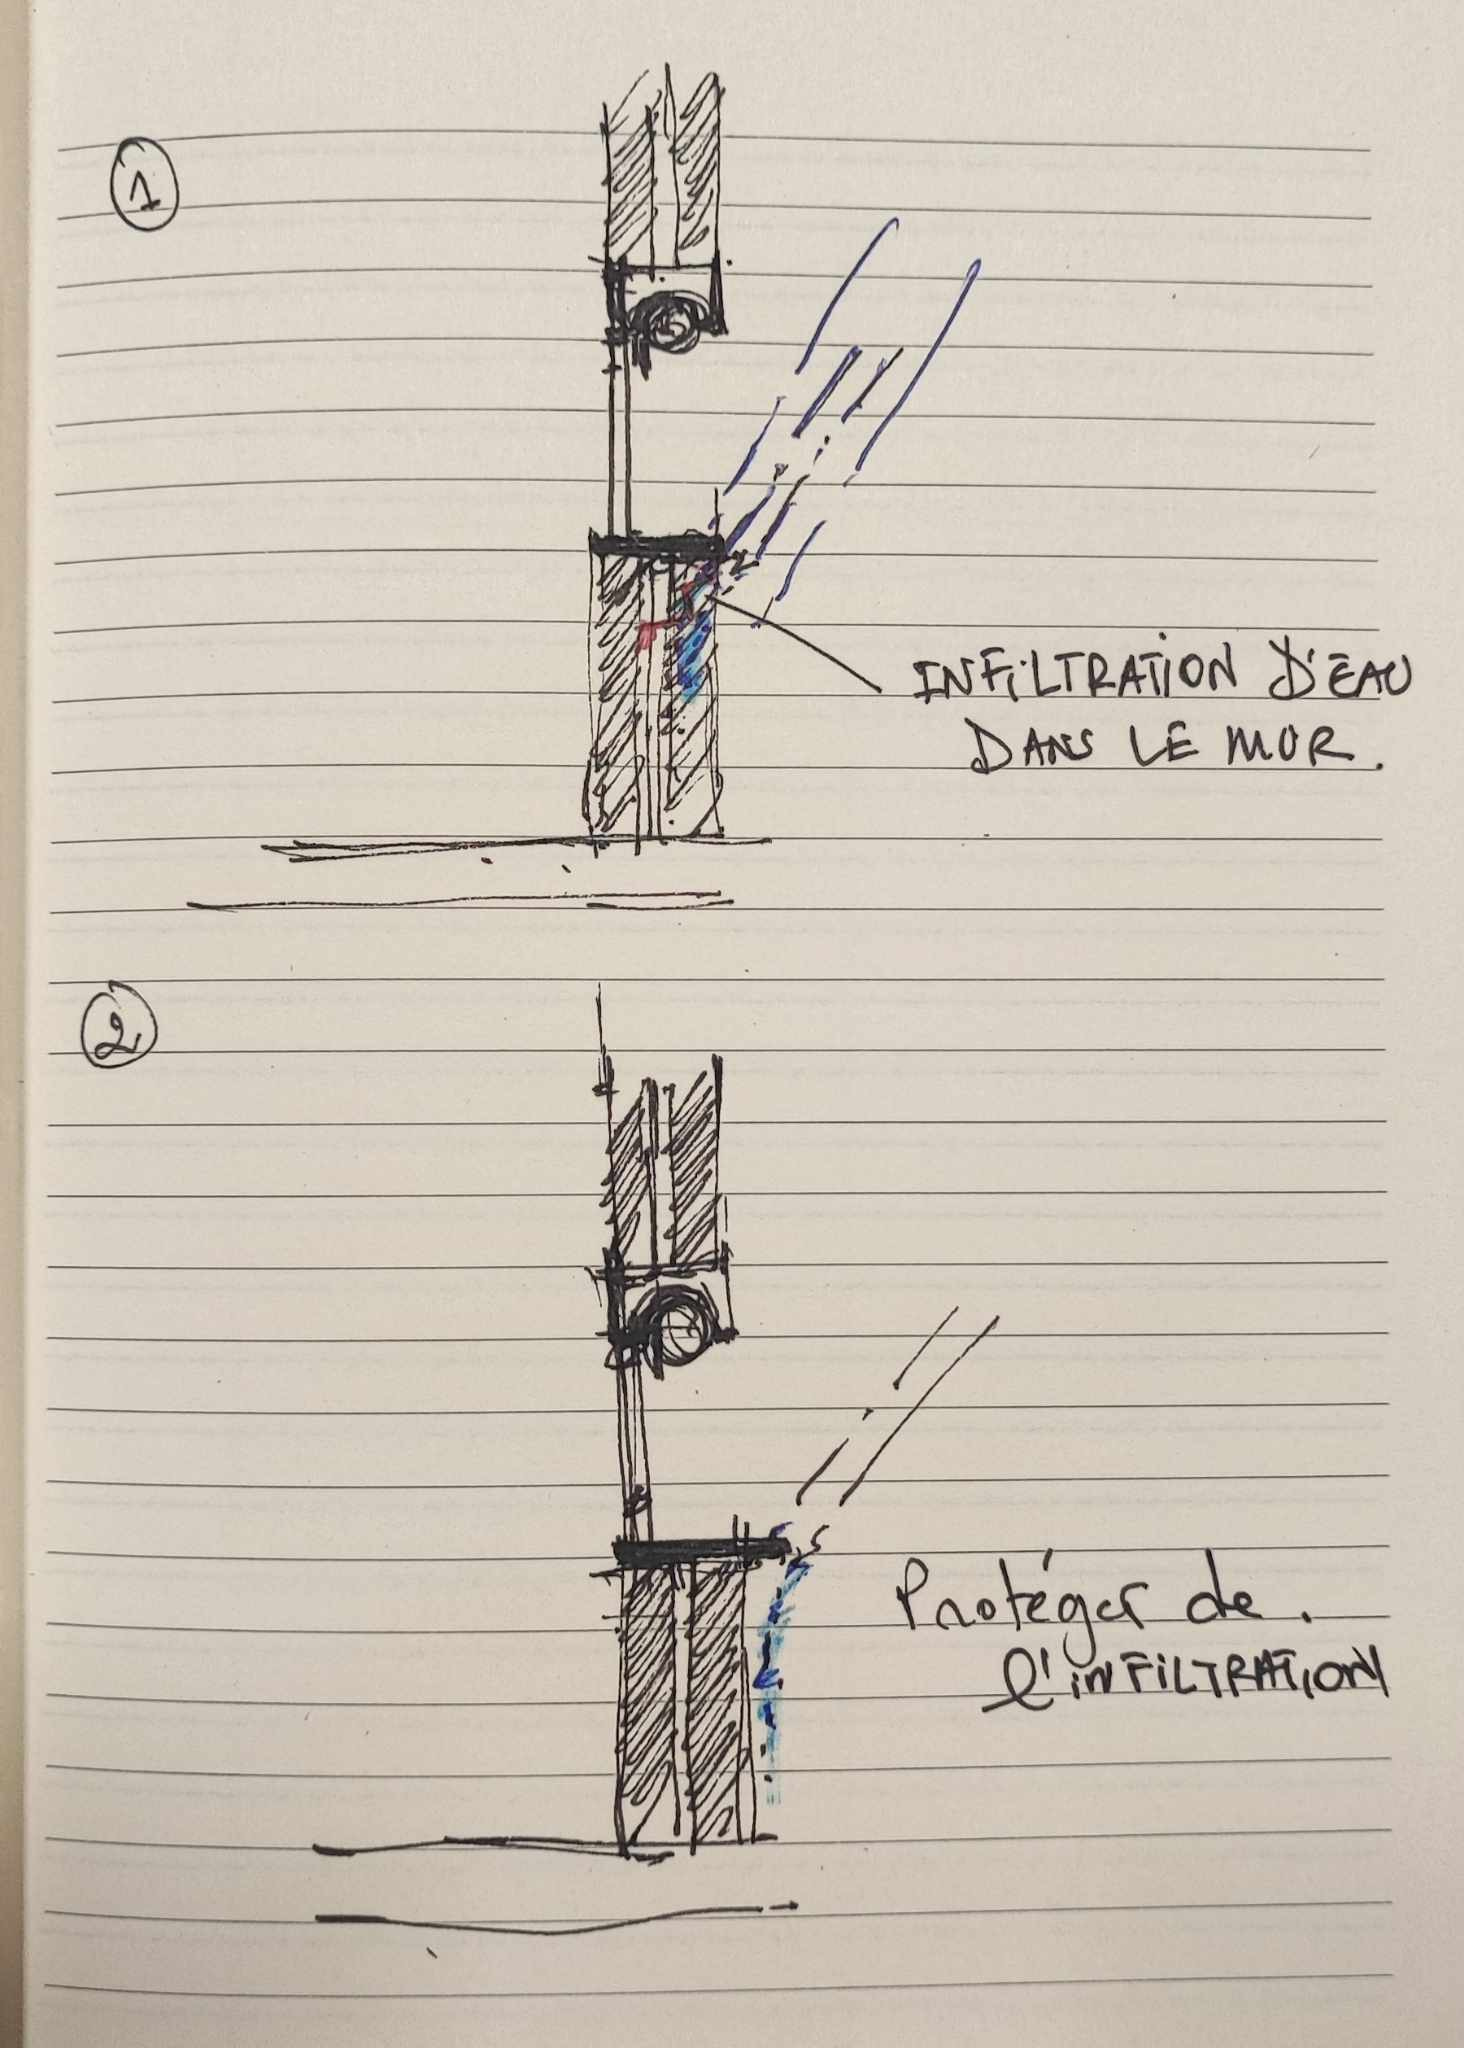 1
INFILTRATION D'EAU
DANS LE MUR.
2
Protéger de.
l'INFILTRATION